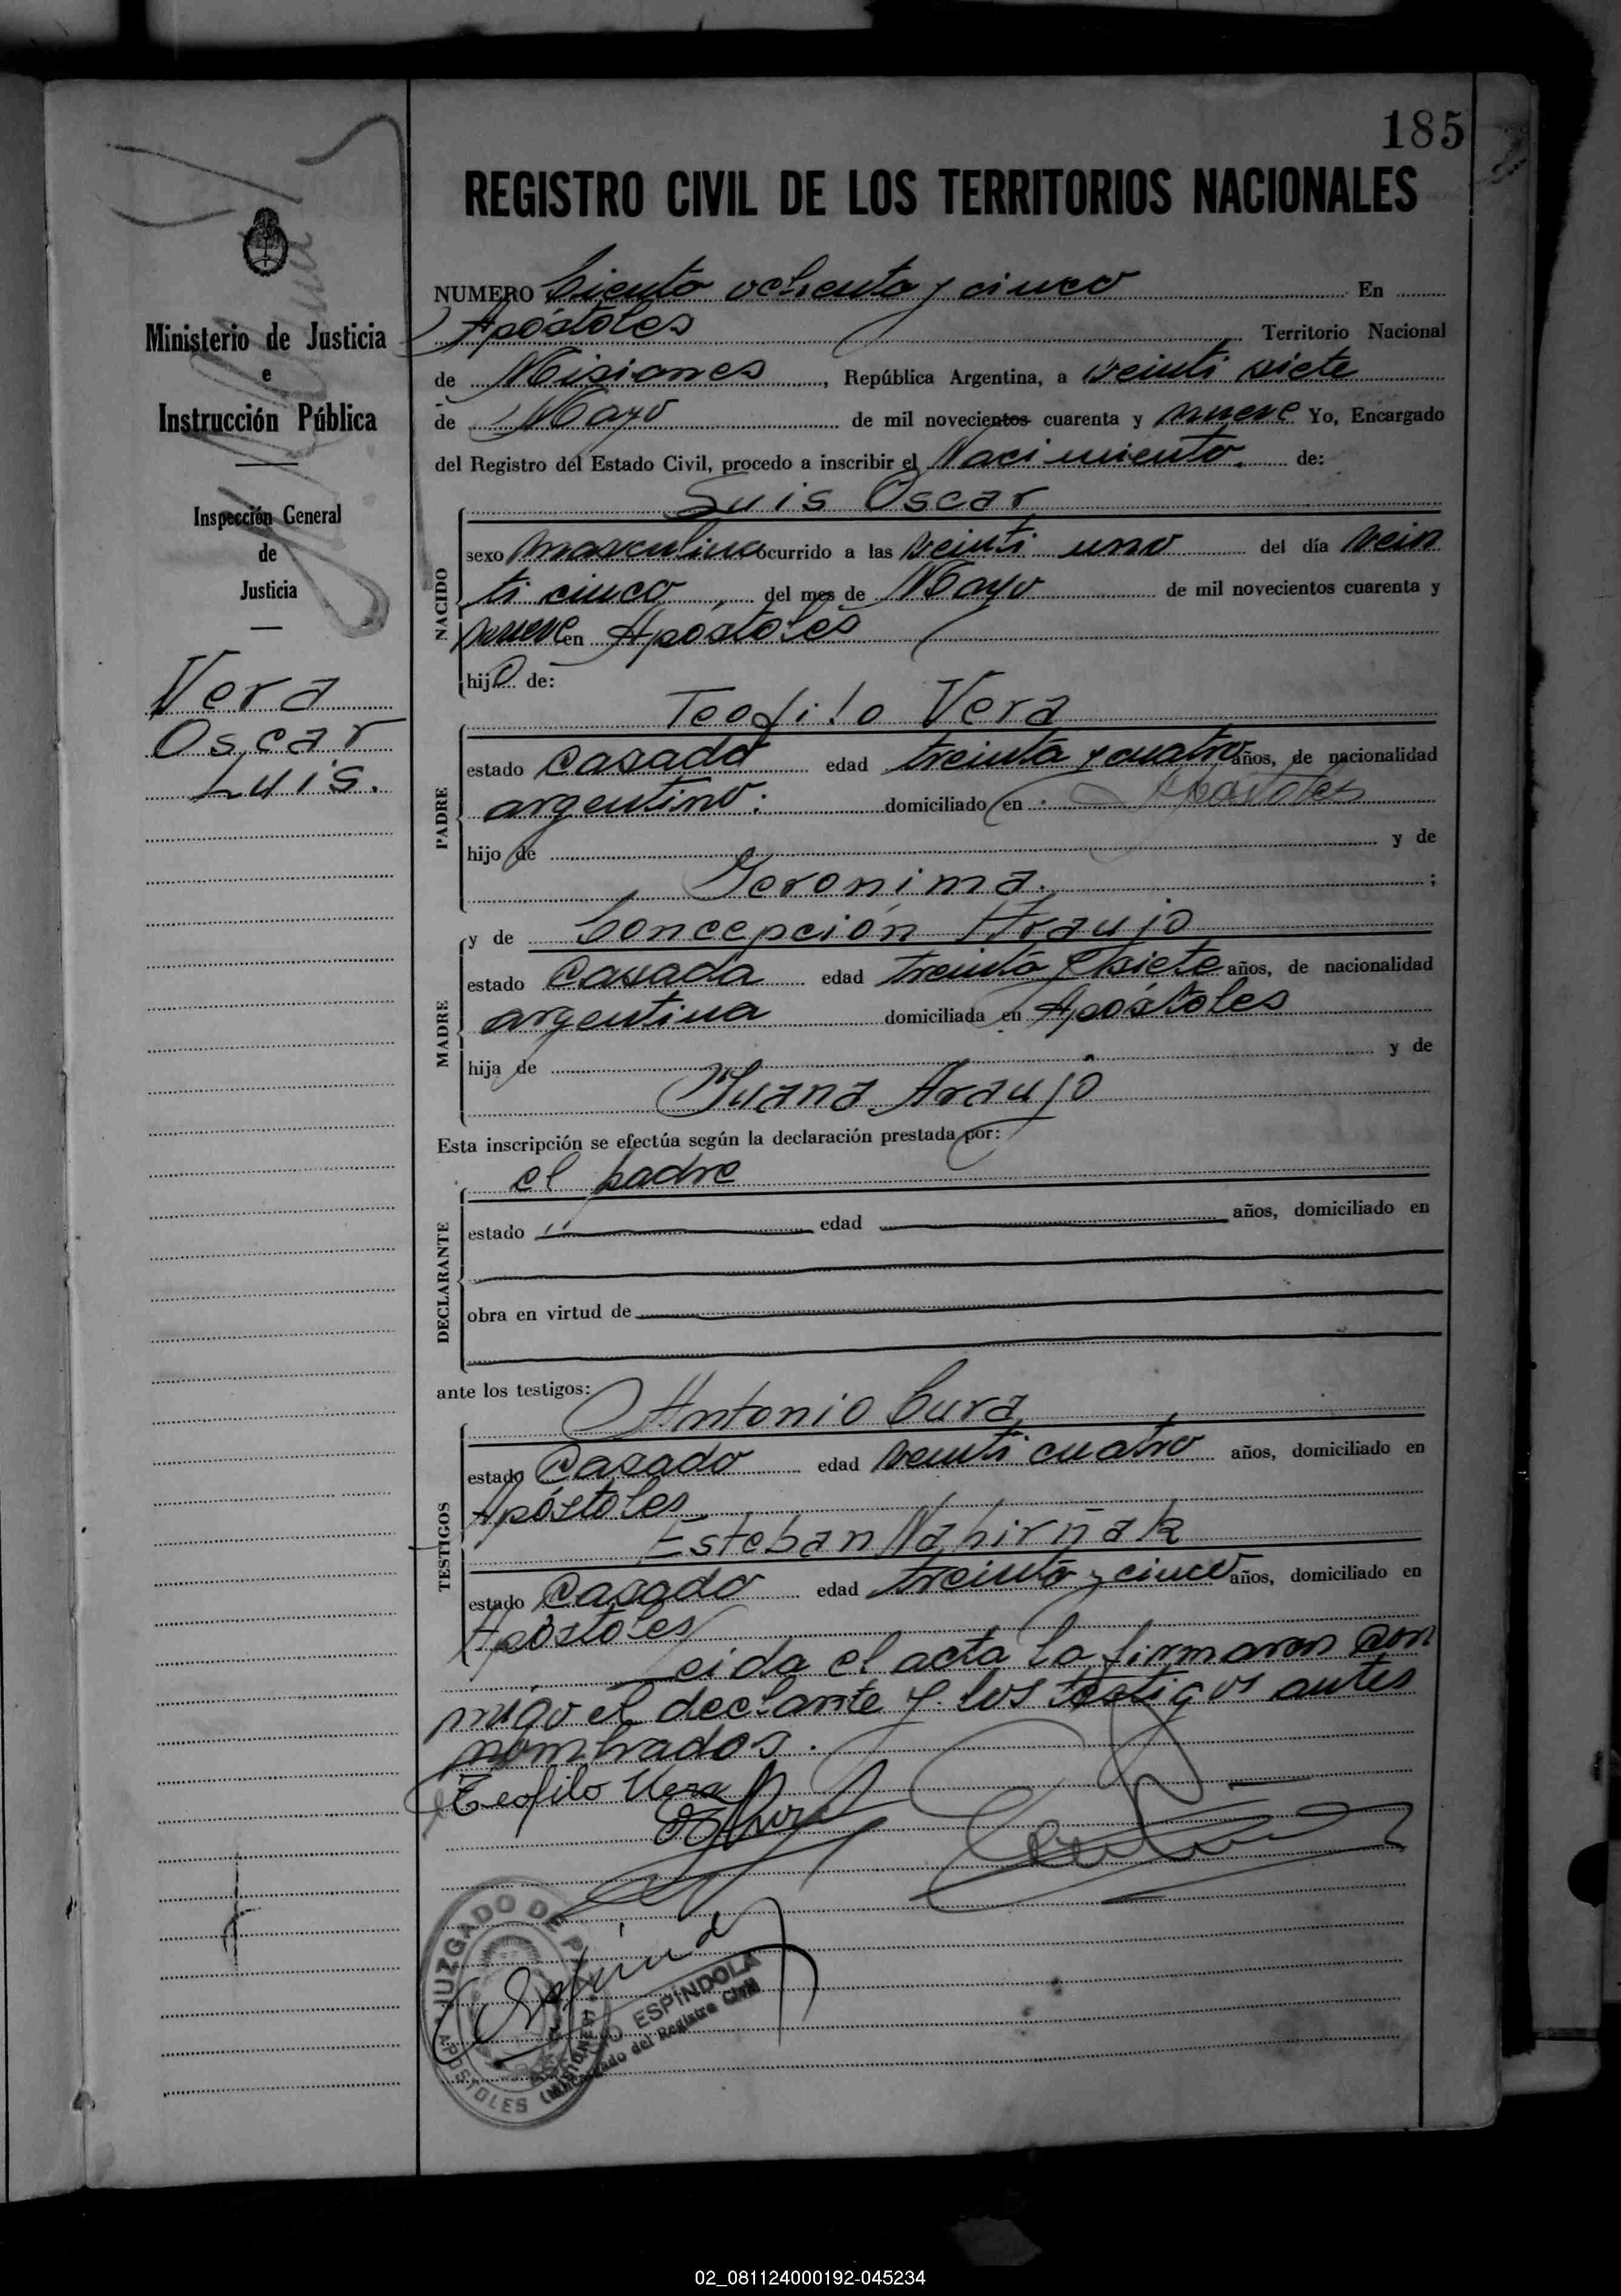 185
REGISTRO CIVIL DE LOS TERRITORIOS NACIONALES
Ministerio de Justicia
e
Instrucción Pública
Inspección General
de
Justicia
Vera
Oscar
Luis.
NUMERO Ciento ochenta y cinco En
Apóstoles Territorio Nacional
de Misiones, República Argentina, a veinti siete
de Mayo de mil novecientos cuarenta y nueve Yo, Encargado
del Registro del Estado Civil, procedo a inscribir el Nacimiento. de:
Luis Oscar
NACIDO
sexo masculino ocurrido a las veinti uno del día vein
ti cinco, del mes de Mayo de mil novecientos cuarenta y
nueve en Apóstoles
hijo de:
Teofilo Vera
PADRE
estado casado edad treinta y cuatro años, de nacionalidad
argentino: domiciliado en Apostoles
hijo de y de
Geronima. ;
MADRE
y de Concepción Araujo
estado Casada edad treinta y siete años, de nacionalidad
argentina domiciliada en Apóstoles
hija de y de
Juana Araujo
Esta inscripción se efectúa según la declaración prestada por:
el padre
DECLARANTE
estado edad años, domiciliado en
obra en virtud de
ante los testigos:
Antonio Cura
TESTIGOS
estado Casado edad veinti cuatro años, domiciliado en
Apóstoles
Esteban Nahirñak
estado Casado edad treinta y cinco años, domiciliado en
Apóstoles
Leida el acta la firmaron con
migo el declante y los testigos antes
nombrados.
Teofilo Vera
JUZGADO DE PAZ
APOSTOLES (MISIONES)
ESPÍNDOLA
Encargado del Registro Civil
02_081124000192-045234